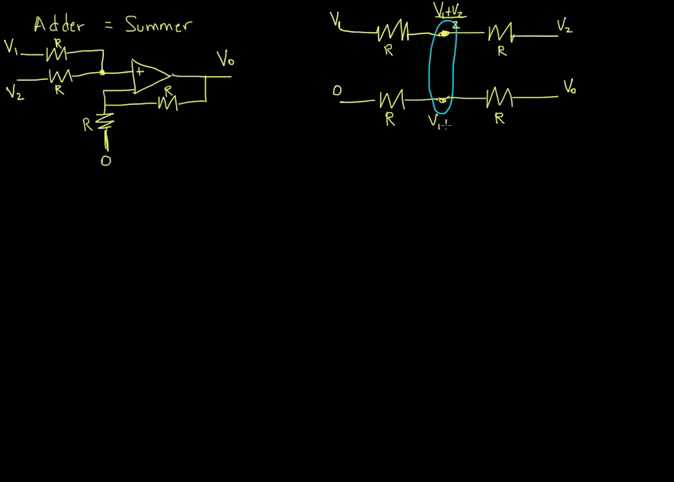 Adder = Summer
V₁ R
V₂ R
+
R
V₀
R
0
V₁ R V₁+V₂
2 R V₂
0 R V₁+ R V₀